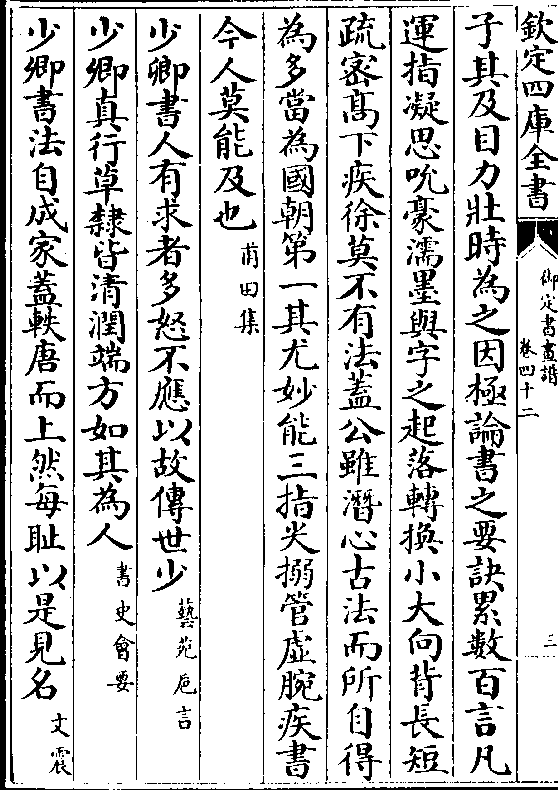 欽定四庫全書
御定書畫譜
卷四十二
三
子其及目力壯時為之因極論書之要訣累數百言凡
運指凝思吮豪濡墨與字之起落轉換小大向背長短
疏密髙下疾徐莫不有法蓋公雖潛心古法而所自得
為多當為國朝第一其尤妙能三指尖搦管虛腕疾書
今人莫能及也甫田集
少卿書人有求者多怒不應以故傳世少藝苑卮言
少卿真行草隸皆清潤端方如其為人書史會要
少卿書法自成家蓋軼唐而上然每耻以是見名文震